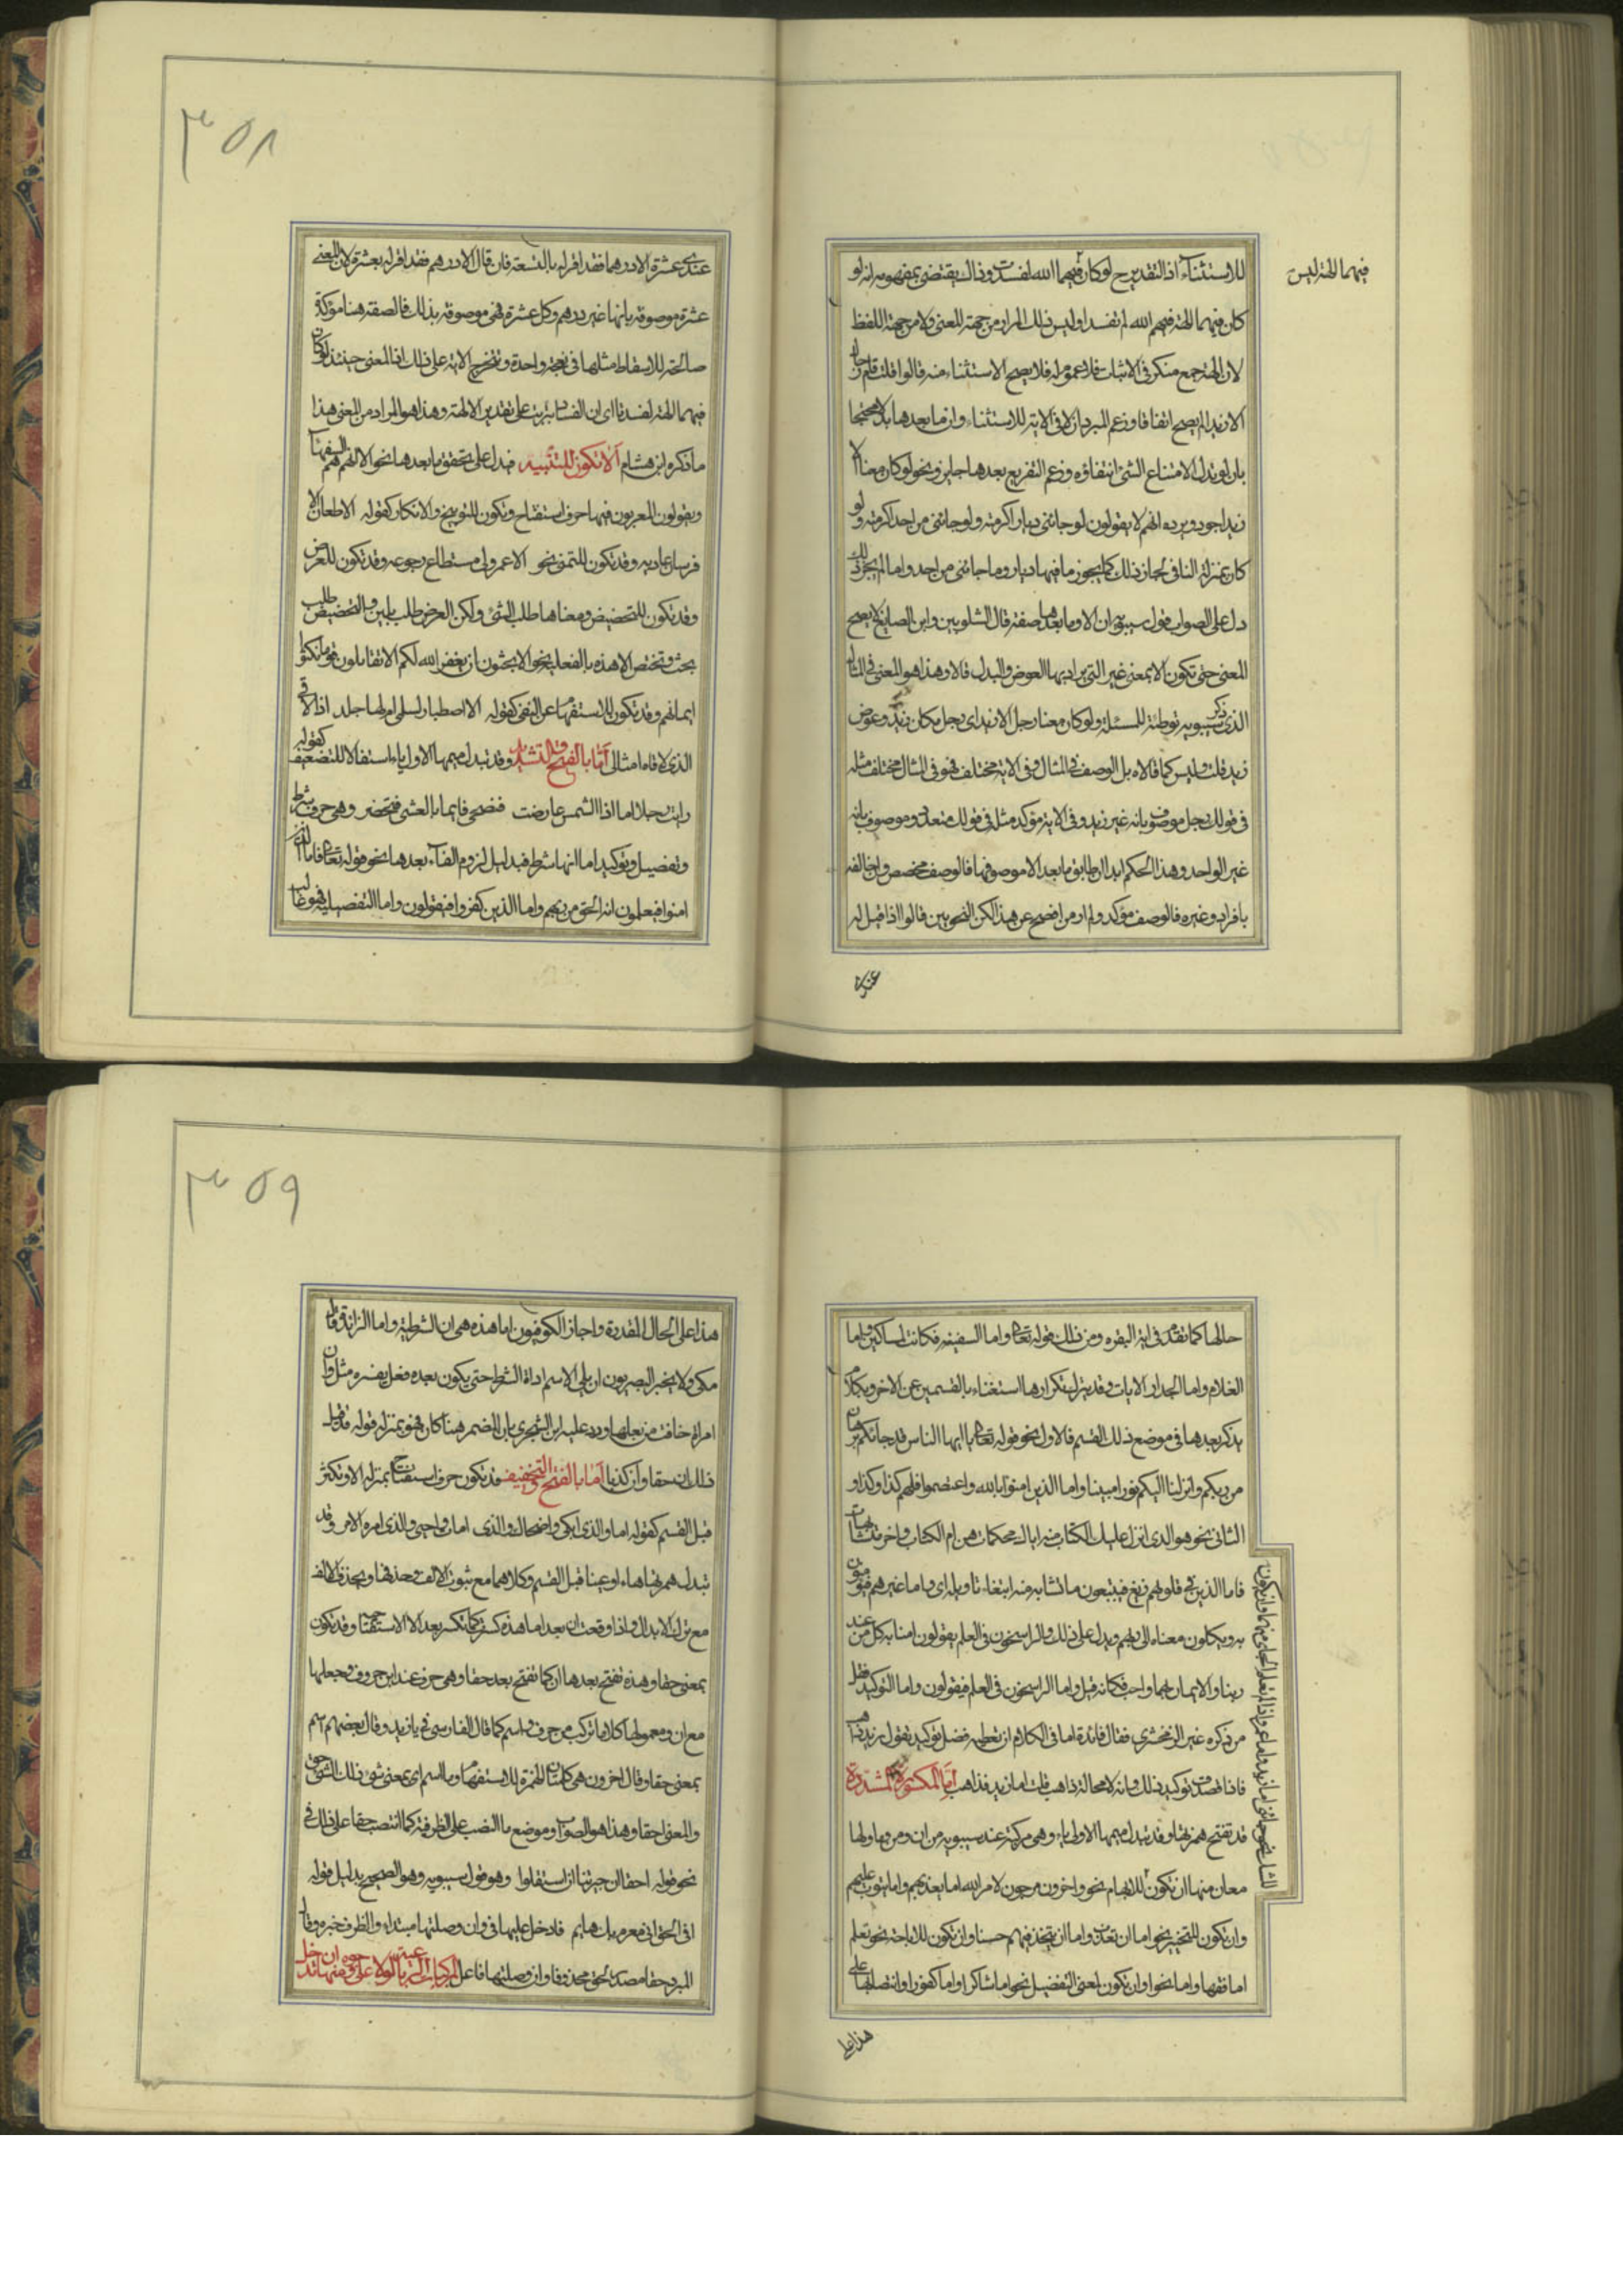 فيهما الهة ليس
للاستثناء اذ التقدير ح لو كان فيهما الله لفسدت وذاك يقتضى بمفهومه انه لو
كان فيهما الهة فيهم الله لم تفسدا وليس ذلك المراد من جهة المعنى ولا من جهة اللفظ
لان الهة جمع منكر فى الاثبات فلا عموم له فلا يصح الاستثناء منه قالوا فلو قلت قام رجال
الا زيدا لم يصح اتفاقا وزعم المبرد ان الا فى الاية للاستثناء وان ما بعدها بدلا محتجا
بان لو تدل لامتناع الشئ انتفاؤه وزعم التفريع بعدها جايز ونحو لو كان معنا الا
زيد اجود ويرده انهم لا يقولون لو جائنى ديار اكرمته ولو جائنى من احد اكرمته ولو
كان بمنزلة النافى لجاز ذلك كما يجوز ما فيها ديار وما جائنى من احد واما لم يجز ذلك
دل على الصواب قول سيبويه ان الا وما بعدها صفة قال الشلوبين وابن الصايغ لا يصح
المعنى حتى تكون الا بمعنى غير التى يراد بها العوض والبدل قالا وهذا هو المعنى فى المثال
الذى ذكر سيبويه توطئة للمسئلة ولو كان معنا رجل الا زيد اى رجل مكان زيد وعوض
زيد قلت وليس كما قالاه بل الوصف فى المثال وفى الاية مختلف فهو فى المثال مختلف مثله
فى قولك رجل موصوف بانه غير زيد وفى الاية مؤكد مثله فى قولك متعدد موصوف بانه
غير الواحد وهذا الحكم ابدا ان طابق ما بعد الا موصوفها فالوصف مخصص وان خالفه
بافراد وغيره فالوصف مؤكد ولم ار من افصح عن هذا لكن النحويين قالوا اذا قيل له
عندى
٣٥٨
عندى عشرة الا درهما فقد اقر له بالتسعة فان قال الا درهم فقد اقر له بعشرة لان المعنى
عشرة موصوفة بانها غير درهم وكل عشرة فهى موصوفة بذلك فالصفة هنا مؤكدة
صالحة للاسقاط مثلها فى نفخة واحدة وتتخرج الاية على ذلك اذ المعنى حينئذ لو كان
فيهما الهة لفسدتا اى ان الفساد يترتب على تقدير الالهة وهذا هو المراد من المعنى هذا
ما ذكره ابن هشام الا تكون للتنبيه فيدل على تحقق ما بعدها نحو الا انهم هم السفهاء
ويقولون المعربون فيها حرف استفتاح وتكون للتوبيخ والانكار كقوله الا طعان الا
فرسان عادية وقد تكون للتمنى نحو الا عمر ولى مستطاع رجوعه وقد تكون للعرض
وقد تكون للتحضيض ومعناها طلب الشئ ولكن العرض طلب بلين والتحضيض طلب
بحث وتختص الا هذه بالفعلية نحو الا تحبون ان يغفر الله لكم الا تقاتلون قوما نكثوا
ايمانهم وقد تكون للاستفهام عن النفى كقوله الا اصطبار لسلمى ام لها جلد اذا الاقى
الذى لاقاه امثالى اما بالفتح والتشديد وقد تبدل ميمها الاولى ياء استثقالا للتضعيف كقوله
رات رجلا اما اذا الشمس عارضت فيضحى وايما بالعشى فيخصر وهى حرف شرط
وتفصيل وتوكيد اما انها شرط فبدليل لزوم الفاء بعدها نحو قوله تعالى فاما الذين
امنوا فيعلمون انه الحق من ربهم واما الذين كفروا فيقولون واما التفصيل فهو غالب
حالها كما تقدم فى اية البقره ومن ذلك قوله تعالى واما السفينه فكانت لمساكين واما
الغلام واما الجدار الايات وقد يترك تكرارها استغناء بالقسمين عن الاخر وبكلام
يذكر بعدها فى موضع ذلك القسم فالاول نحو قوله تعالى يا ايها الناس قد جائكم برهان
من ربكم وانزلنا اليكم نورا مبينا واما الذين امنوا بالله واعتصموا فلهم كذا وكذا و
الثانى نحو هو الذى انزل عليك الكتاب منه ايات محكمات هن ام الكتاب واخر متشابهات
فاما الذين فى قلوبهم زيغ فيتبعون ما تشابه منه ابتغاء تاويله اى واما غيرهم فيؤمنون
به ويكلون معناه الى ربهم ويدل على ذلك والراسخون فى العلم يقولون امنا به كل من عند
ربنا والايمان بهما واجب فكانه قيل واما الراسخون فى العلم فيقولون واما التوكيد فقل
من ذكره غير الزمخشرى فقال فائدة اما فى الكلام ان تعطيه فضل توكيد تقول زيد ذاهب
فاذا قصدت توكيد ذلك وانه لا محالة ذاهب قلت اما زيد فذاهب اما المكسورة المشددة
قد تفتح همزتها وقد تبدل ميمها الاولى ياء وهى مركبة عند سيبويه من ان ومن ما ولها
معان منها ان تكون للابهام نحو واخرون مرجون لامر الله اما يعذبهم واما يتوب عليهم
وان تكون للتخيير نحو اما ان تعذب واما ان تتخذ فيهم حسنا وان تكون للاباحة نحو تعلم
اما فقها واما نحوا وان تكون لمعنى التفصيل نحو اما شاكرا واما كفورا وانتصابها على
هذا على
٣٥٩
هذا على الحال المقدرة واجاز الكوفيون اما هذه هى ان الشرطية واما الزائدة قال
مكى ولا يخبر البصريون ان يلى الاسم اداة الشرط حتى يكون بعده فعل يفسره مثل وان
امراة خافت من بعلها ورد عليه ابن الشجرى بان المضمر هنا كان فهو بمنزلة قوله قد قيل
ذلك ان حقا وان كذبا اما بالفتح والتخفيف قد تكون حرف استفتاح بمنزلة الا وتكثر
قبل القسم كقوله اما والذى ابكى واضحك والذى امات واحيى والذى امره الامر وقد
تبدل همزتها هاء او عينا قبل القسم وكلاهما مع ثبوت الالف وحذفها ويحذف الالف
مع ترك الابدال واذا وقعت ان بعد اما هذه كسرت كما تكسر بعد الا الاستفتاحية وقد تكون
بمعنى حقا وهذه تفتح بعدها ان كما تفتح بعد حقا وهى حرف عند ابن خروف وجعلها
مع ان ومعمولها كلاما تركب من حرف واسم كما قال الفارسى فى يا زيد وقال بعضهم اسم
بمعنى حقا وقال اخرون هى كلمتان الهمزة للاستفهام وما اسم اى بمعنى شئ ذلك الشئ حق
والمعنى احقا وهذا هو الصواب وموضع ما النصب على الظرفية كما انتصب حقا على ذلك فى
نحو قوله احقا ان جيرتنا استقلوا وهو قول سيبويه وهو الصحيح بدليل قوله
افى الحق انى مغرم بك هايم فادخل عليها فى وان وصلتها مبتداء والظرف خبره وقال
المبرد حقا مصدر لحق محذوفا وان وصلتها فاعل